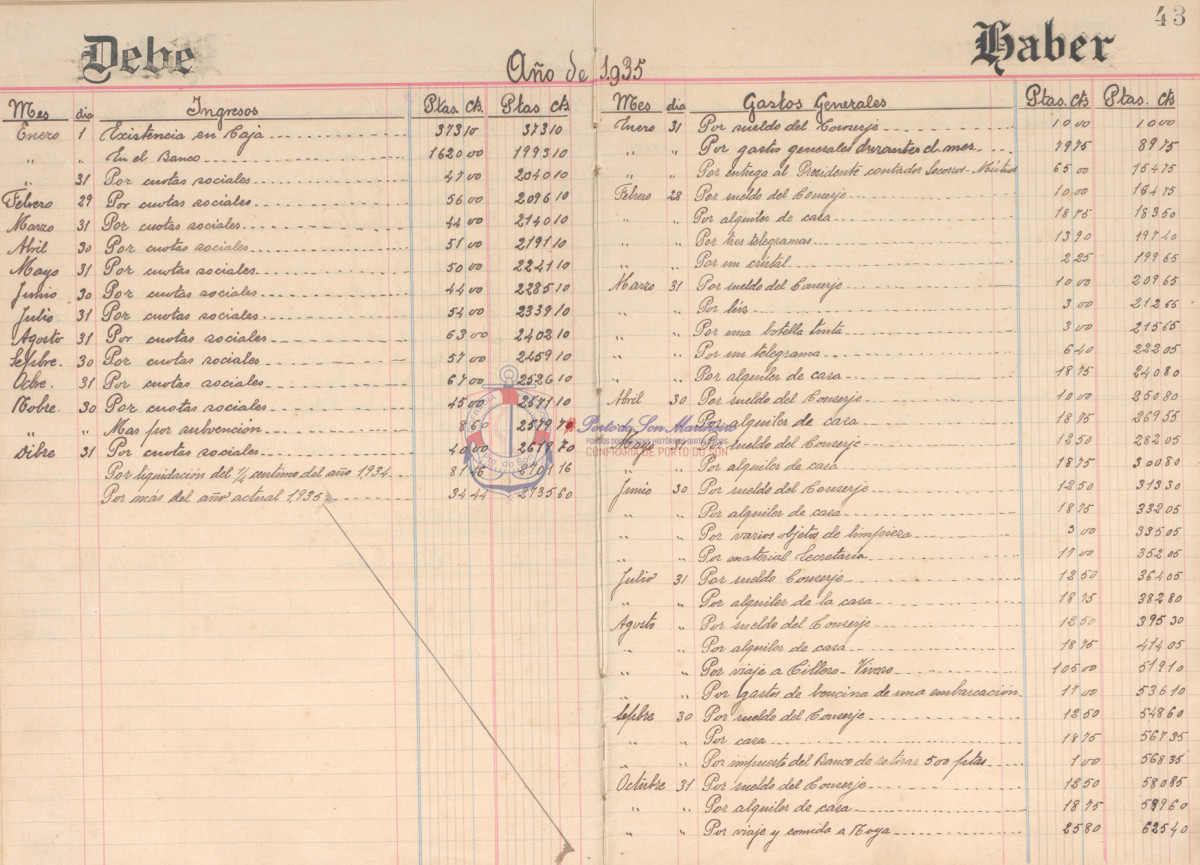 43
Debe
Haber
Año de 1935
Mes dia Ingresos Ptas. Cts. Ptas Cts
Enero 1 Existencia en Caja 373 10 373 10
" " En el Banco 1620 00 1993 10
" 31 Por cuotas sociales 47 00 2040 10
Febrero 29 Por cuotas sociales 56 00 2096 10
Marzo 31 Por cuotas sociales 44 00 2140 10
Abril 30 Por cuotas sociales 51 00 2191 10
Mayo 31 Por cuotas sociales 50 00 2241 10
Junio 30 Por cuotas sociales 44 00 2285 10
Julio 31 Por cuotas sociales 54 00 2339 10
Agosto 31 Por cuotas sociales 63 00 2402 10
Sepbre. 30 Por cuotas sociales 57 00 2459 10
Ocbre. 31 Por cuotas sociales 67 00 2526 10
Nobre. 30 Por cuotas sociales 45 00 2571 10
" " Mas por subvención 8 60 2579 70
Dibre 31 Por cuotas sociales 40 00 2619 70
Por liquidación del 1/4 centimo del año 1934 81 46 2701 16
Por más del año actual 1935 34 44 2735 60
Mes dia Gastos Generales Ptas. Cts Ptas. Cts
Enero 31 Por sueldo del Conserje 10 00 10 00
" " Por gastos generales durantes el mes 79 75 89 75
" " Por entrega al Presidente contador Socorros-Mutuos 65 00 154 75
Febrero 28 Por sueldo del Conserje 10 00 164 75
" " Por alquiler de casa 18 75 183 50
" " Por tres telegramas 13 90 197 40
" " Por un cristal 2 25 199 65
Marzo 31 Por sueldo del Conserje 10 00 209 65
" " Por luz 3 00 212 65
" " Por una botella tinta 3 00 215 65
" " Por un telegrama 6 40 222 05
" " Por alquiler de casa 18 75 240 80
Abril 30 Por sueldo del Conserje 10 00 250 80
" " Por alquiler de casa 18 75 269 55
Mayo 31 Por sueldo del Conserje 12 50 282 05
" " Por alquiler de casa 18 75 300 80
Junio 30 Por sueldo del Conserje 12 50 313 30
" " Por alquiler de casa 18 75 332 05
" " Por varios objetos de limpieza 3 00 335 05
" " Por material Secretaria 17 00 352 05
Julio 31 Por sueldo Conserje 12 50 364 05
" " Por alquiler de la casa 18 75 382 80
Agosto " Por sueldo del Conserje 12 50 395 30
" " Por alquiler de casa 18 75 414 05
" " Por viaje a Cillero - Vivero 105 00 519 10
" " Por gastos de bencina de una embarcación 17 00 536 10
Sepbre 30 Por sueldo del Conserje 12 50 548 60
" " Por casa 18 75 567 35
" " Por impuesto del Banco de retirar 500 ptas 1 00 568 35
Octubre 31 Por sueldo del Conserje 12 50 580 85
" " Por alquiler de casa 18 75 599 60
" " Por viaje y comida a Noya 25 80 625 40
Porto do Son Mariñeiro
CONFRARÍA DE PORTO DO SON